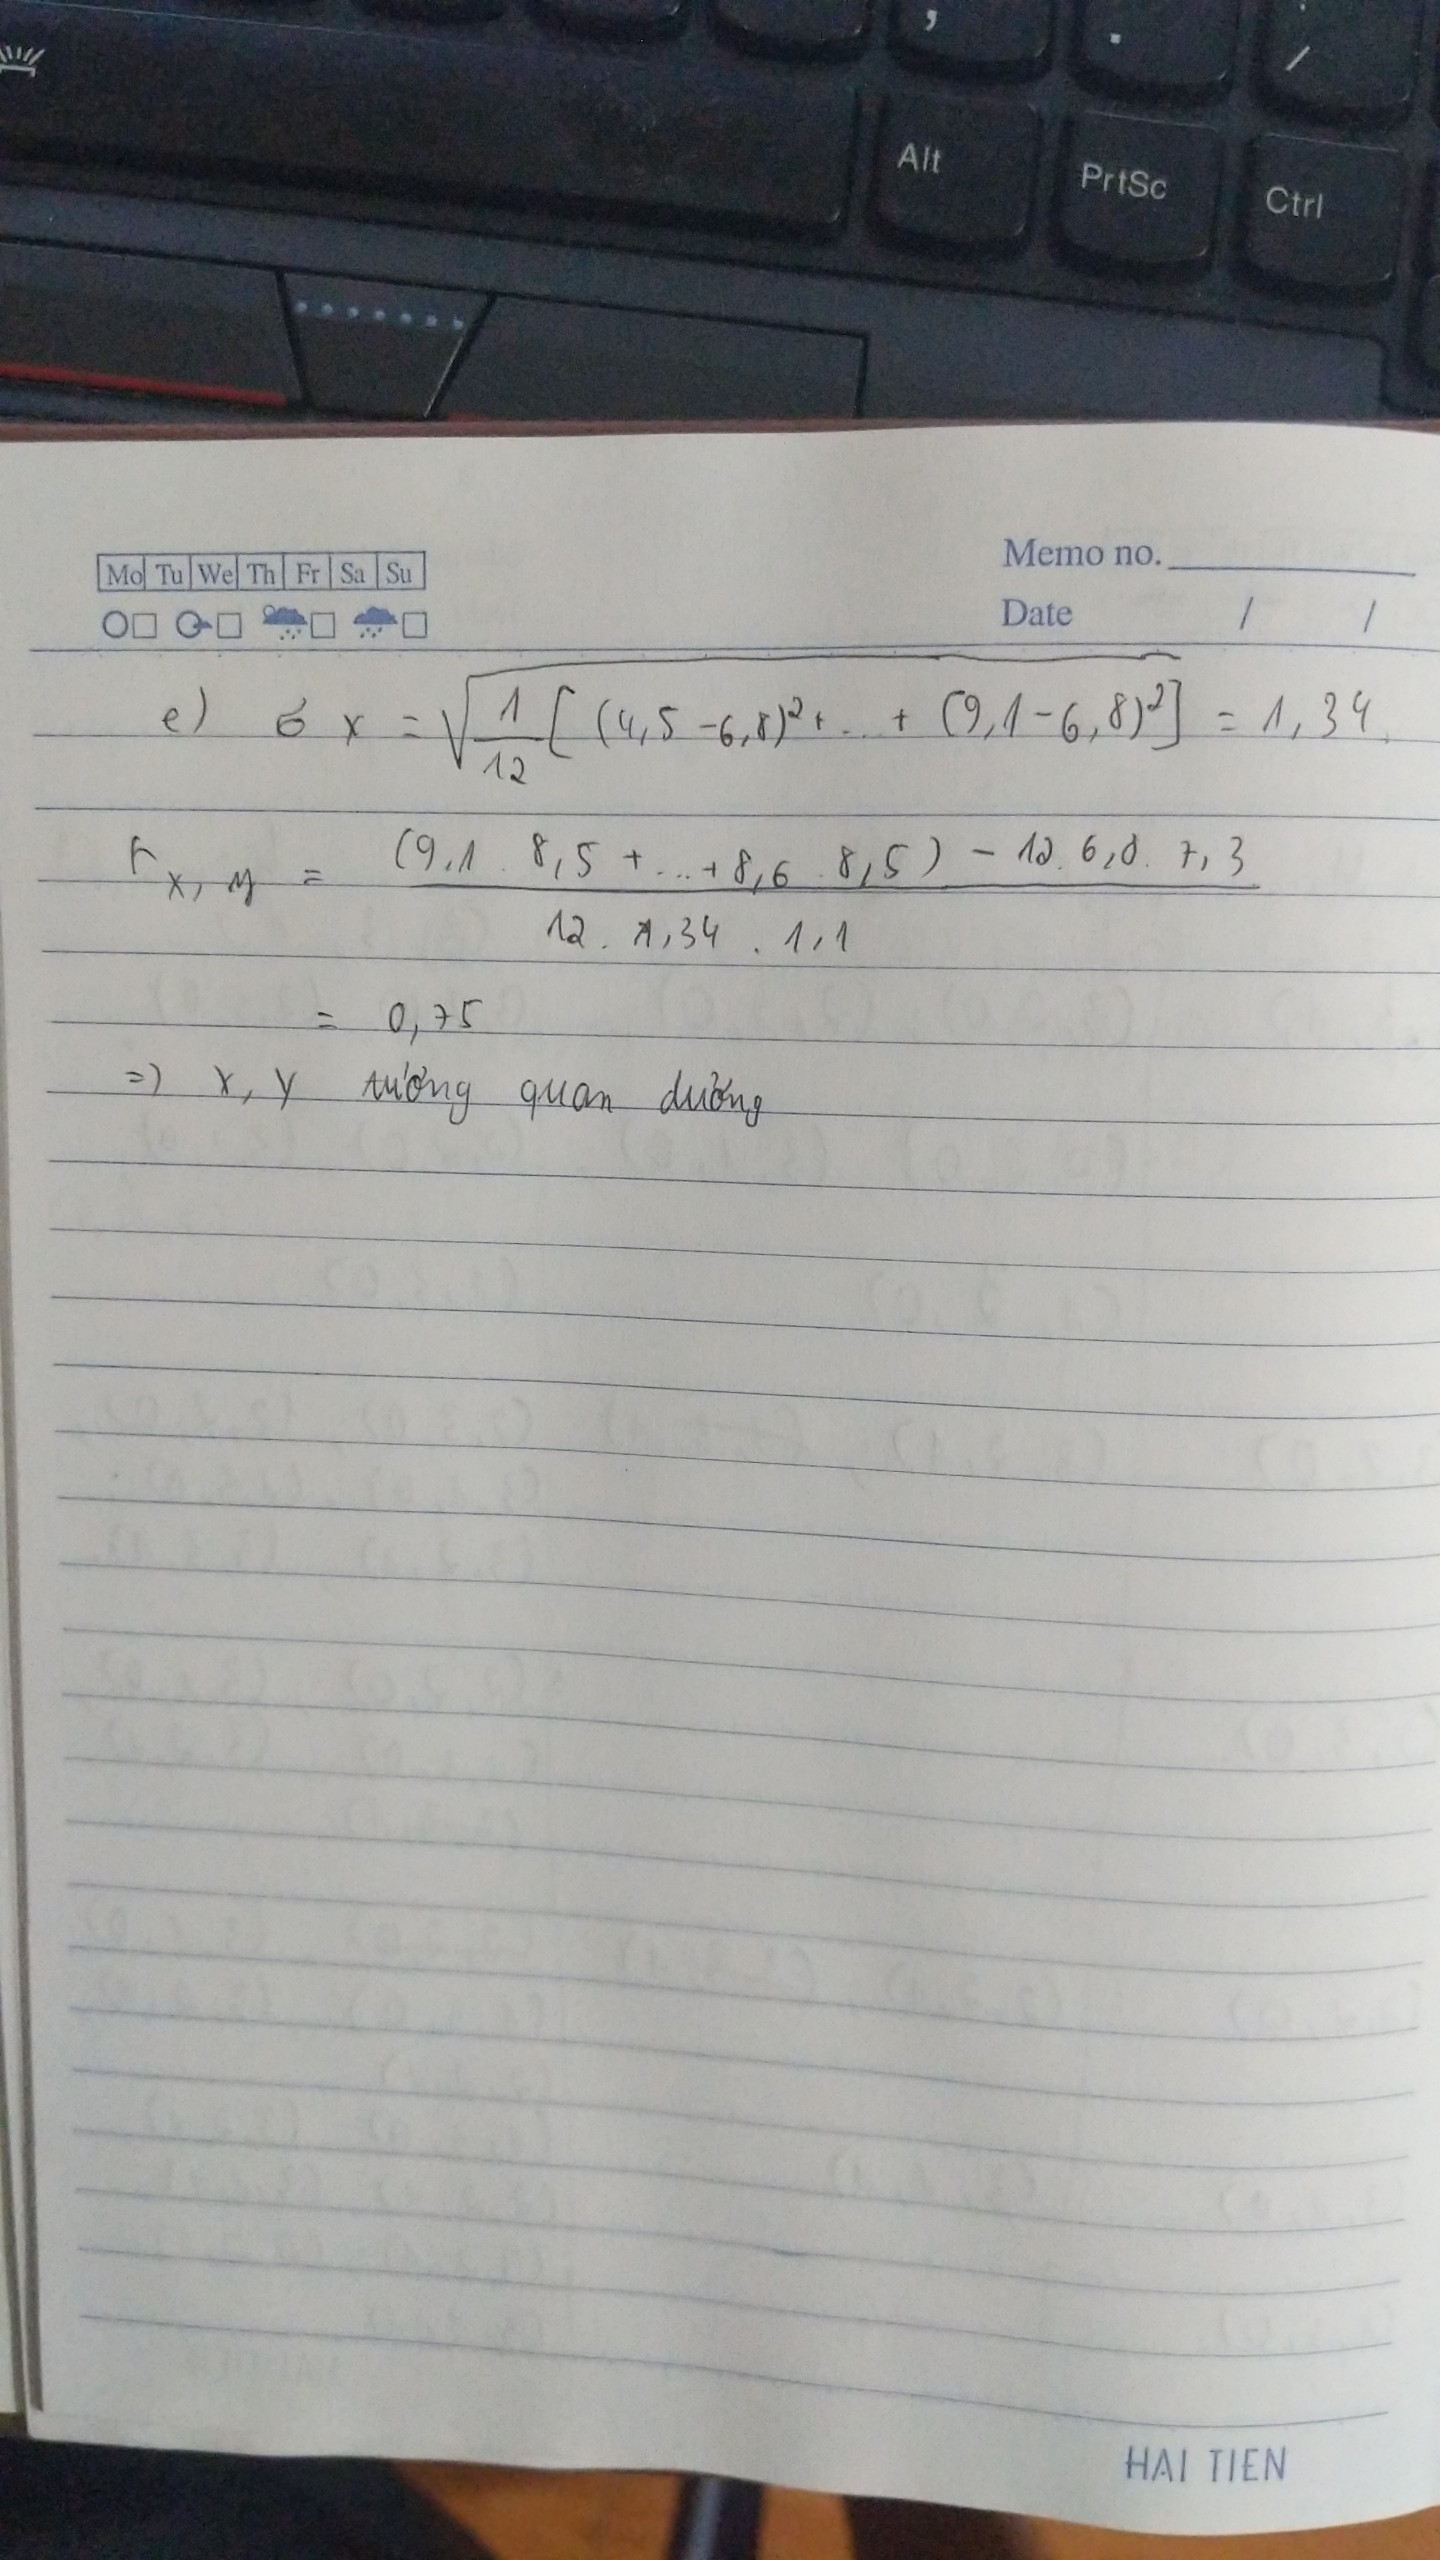 ,
.
/
Alt
PrtSc
Ctrl
Mo Tu We Th Fr Sa Su
Memo no.
Date / /
e) σ x = √ 1/12 [ (4,5 - 6,8)² + ... + (9,1 - 6,8)² ] = 1,34
r x, y = (9,1 . 8,5 + ... + 8,6 . 8,5) - 12. 6,8. 7,3
12 . 1,34 . 1,1
= 0,75
=> X, Y tương quan dương
HAI TIEN